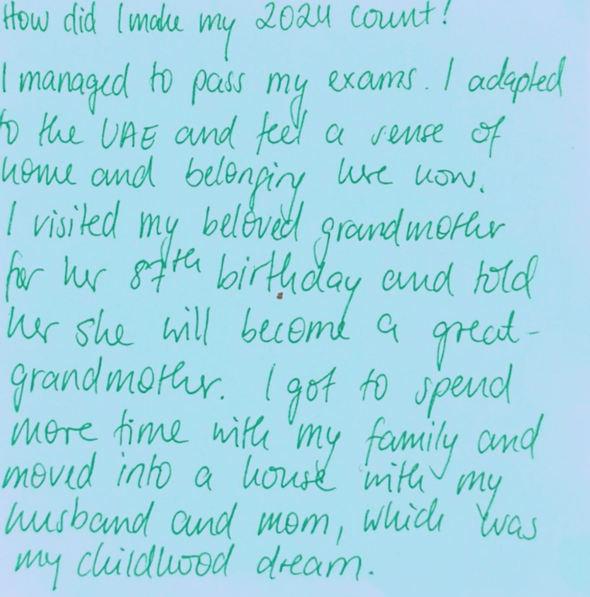 How did I make my 2024 count!
I managed to pass my exams. I adapted
to the UAE and feel a sense of
home and belonging here now.
I visited my beloved grandmother
for her 87th birthday and told
her she will become a great-
grandmother. I got to spend
more time with my family and
moved into a house with my
husband and mom, which was
my childhood dream.